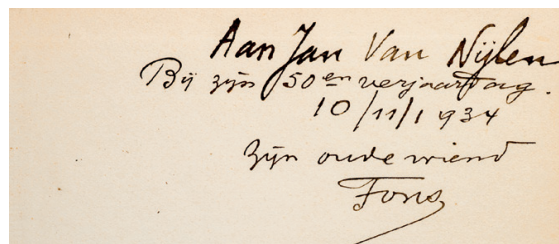 Aan Jan Van Nijlen
Bij zijn 50en verjaardag.
10/11/1934
zijn oude vriend
Fons